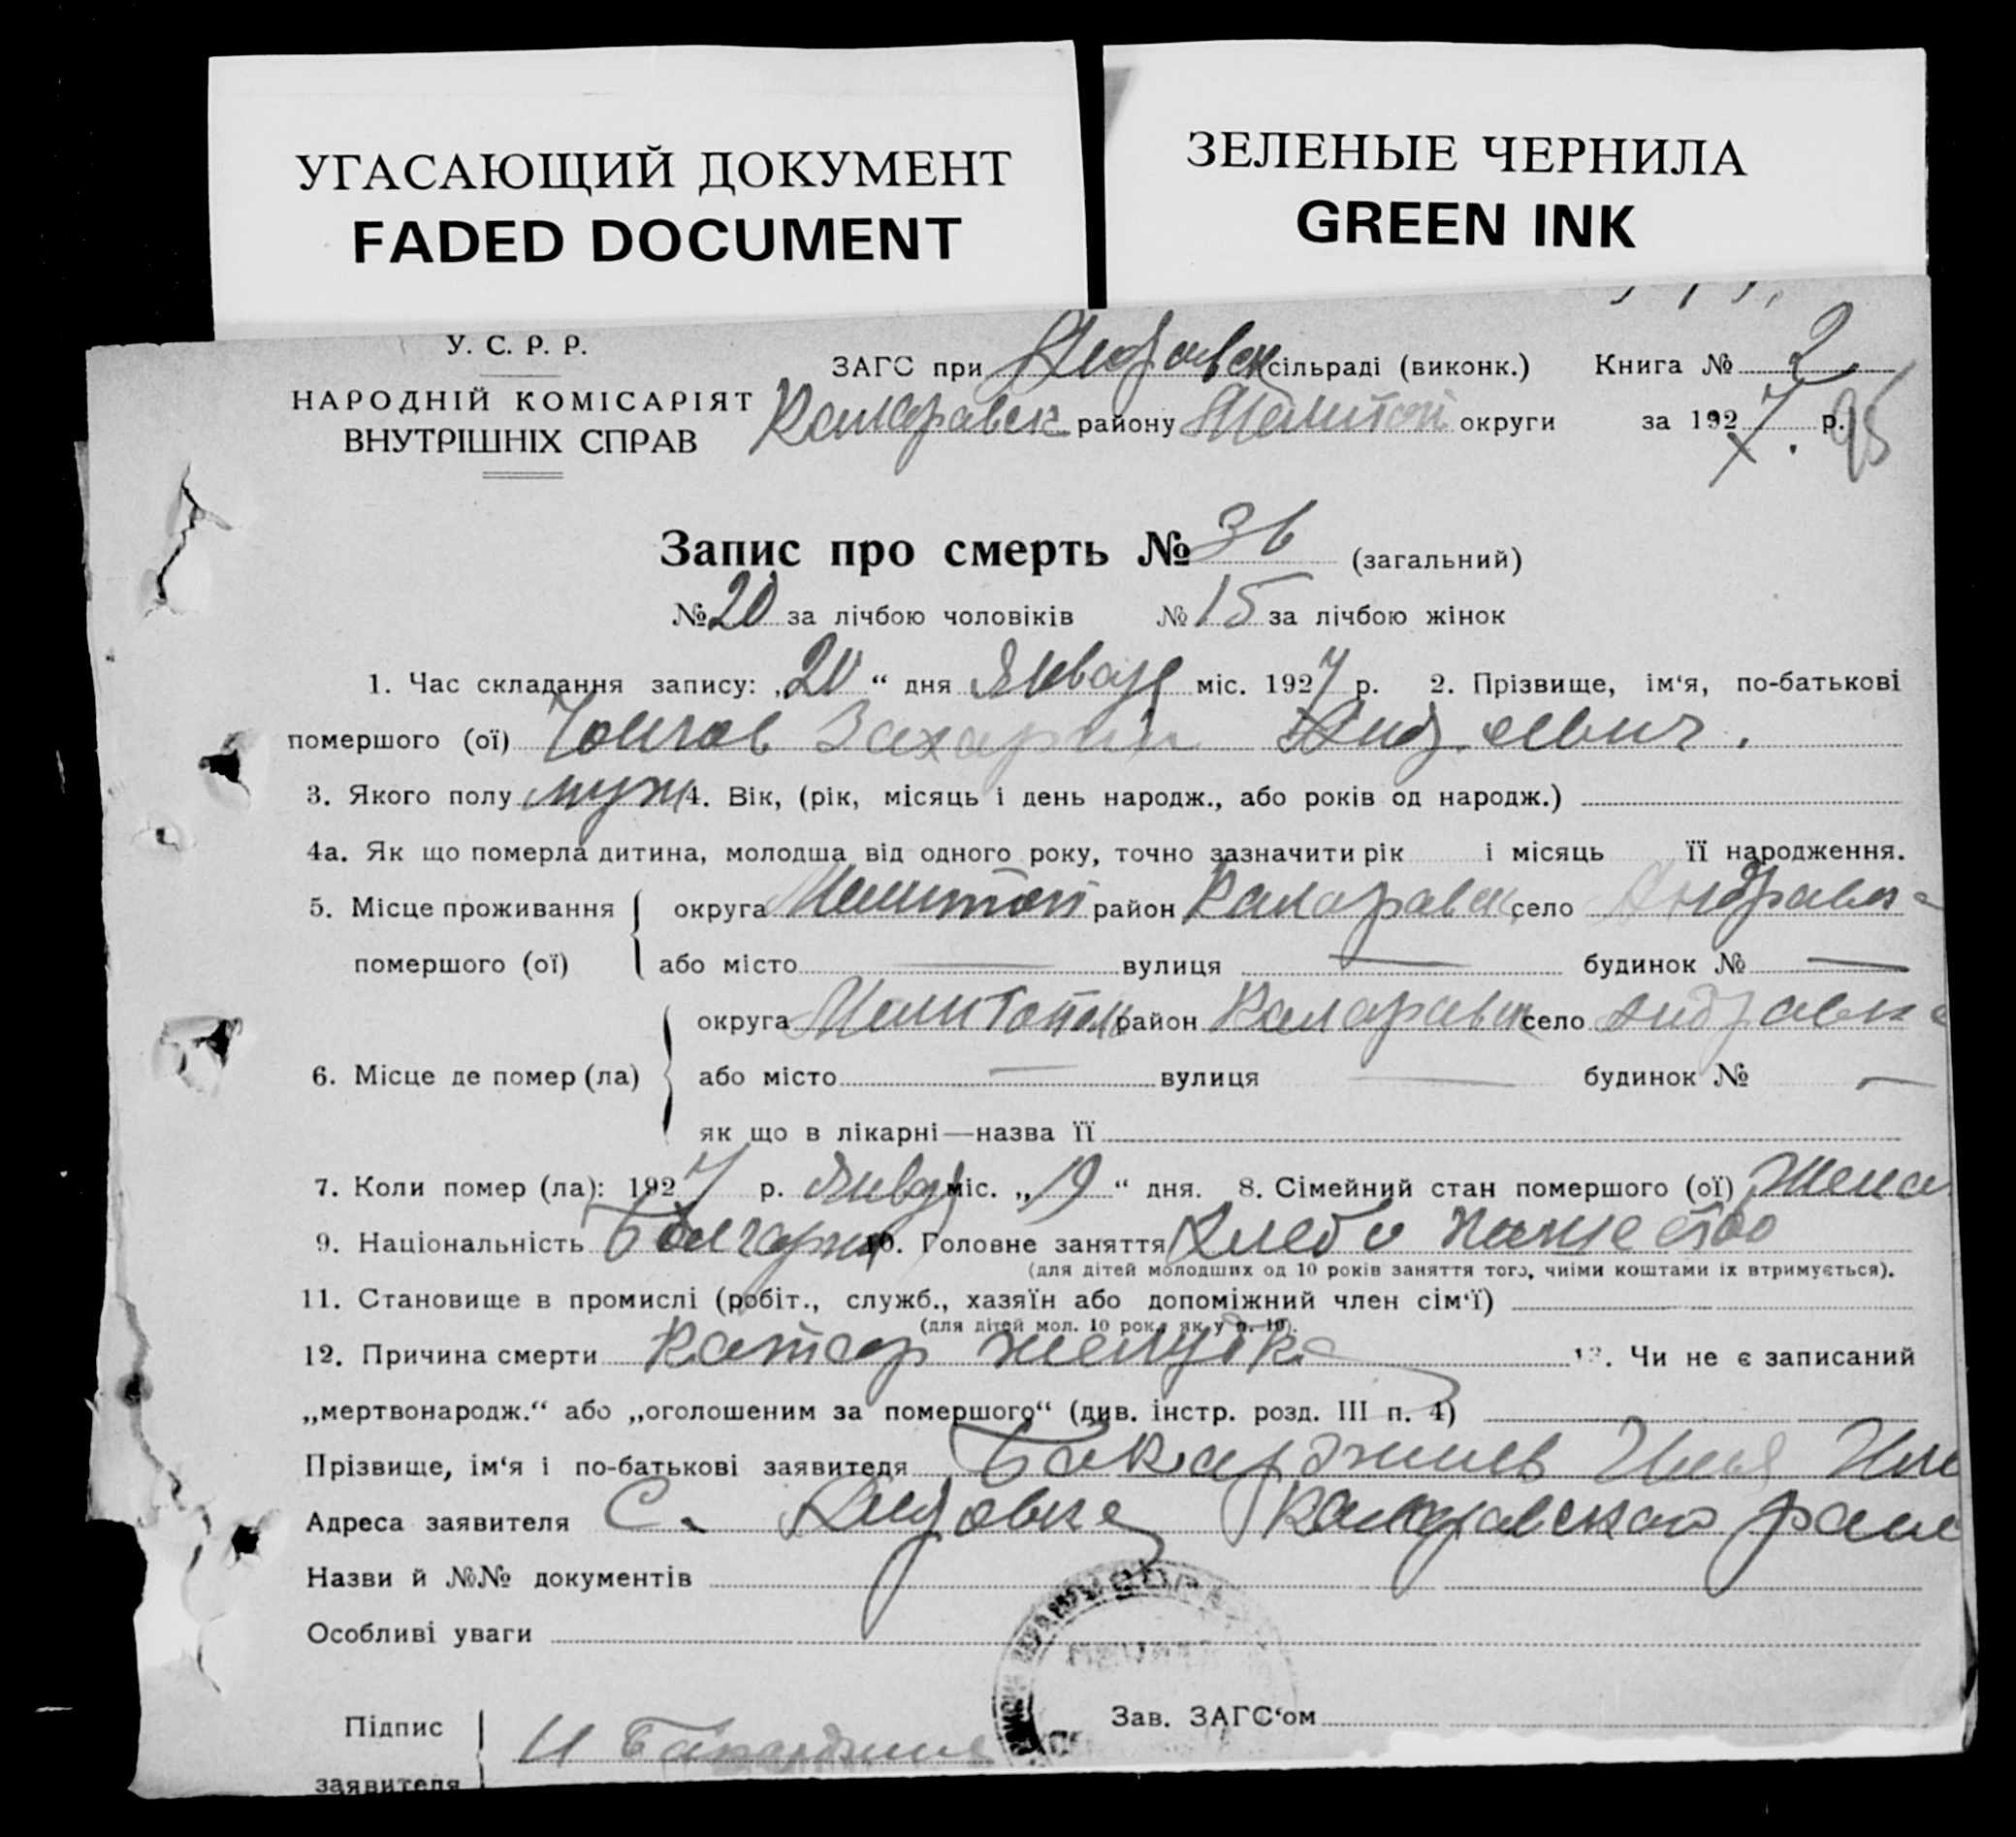 УГАСАЮЩИЙ ДОКУМЕНТ
FADED DOCUMENT
ЗЕЛЕНЫЕ ЧЕРНИЛА
GREEN INK
У. С. Р. Р.
НАРОДНІЙ КОМІСАРІЯТ
ВНУТРІШНІХ СПРАВ
ЗАГС при сільраді (виконк.) Книга № 2
району округи за 1927 р. 95
Запис про смерть № 36 (загальний)
№ 20 за лічбою чоловіків № 15 за лічбою жінок
1. Час складання запису: „20“ дня Январ міс. 1927 р. 2. Прізвище, ім‘я, по-батькові
помершого (ої) Захарий
3. Якого полу муж 4. Вік, (рік, місяць і день народж., або років од народж.)
4а. Як що померла дитина, молодша від одного року, точно зазначити рік і місяць її народження.
5. Місце проживання округа район село
помершого (ої) або місто — вулиця — будинок № —
округа район село
6. Місце де помер (ла) або місто — вулиця — будинок № —
як що в лікарні—назва її
7. Коли помер (ла): 1927 р. Январ міс. „19“ дня. 8. Сімейний стан помершого (ої) Жена
9. Національність Болгарин 10. Головне заняття Хлебопашество
(для дітей молодших од 10 років заняття того, чиїми коштами їх втримується).
11. Становище в промислі (робіт., служб., хазяїн або допоміжний член сім‘ї)
(для дітей мол. 10 рок., як у п. 10).
12. Причина смерти Катар желудка 13. Чи не є записаний
„мертвонародж.“ або „оголошеним за помершого“ (див. інстр. розд. III п. 4)
Прізвище, ім‘я і по-батькові заявителя Бакарджиев Илья
Адреса заявителя С.
Назви й №№ документів
Особливі уваги
Підпис
заявителя И
Зав. ЗАГС‘ом